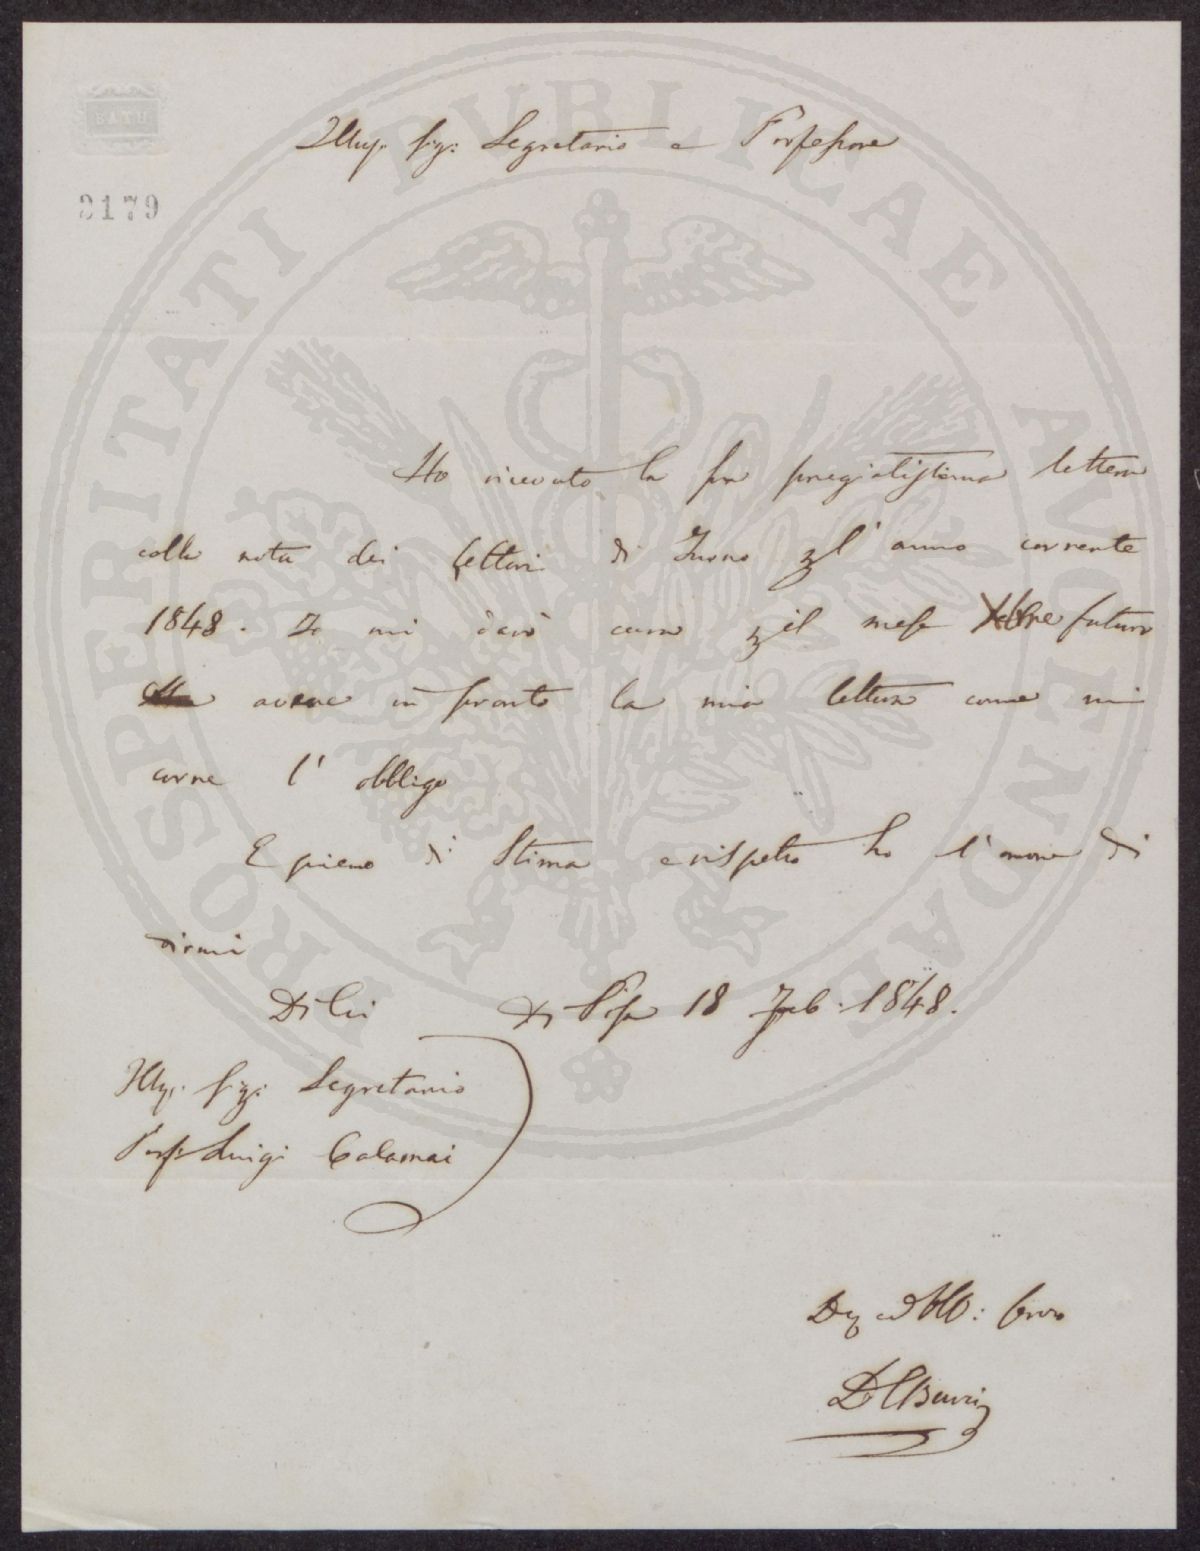 BATH
PROSPERITATI PUBLICAE AUGENDAE
3179
Sig: Segretario e Professore
Ho ricevuto la sua pregiatissima lettera
colla nota dei lettori di Turno pl' anno corrente
1848. Io mi darò cura pil mese futuro
avere in pronto la mia lettura come mi
corre l' obbligo
E pieno di Stima e rispetto ho l' onore di
dirmi
Di Lei Di Pisa 18 Feb. 1848.
Sig: Segretario
Prof: Luigi Calamai